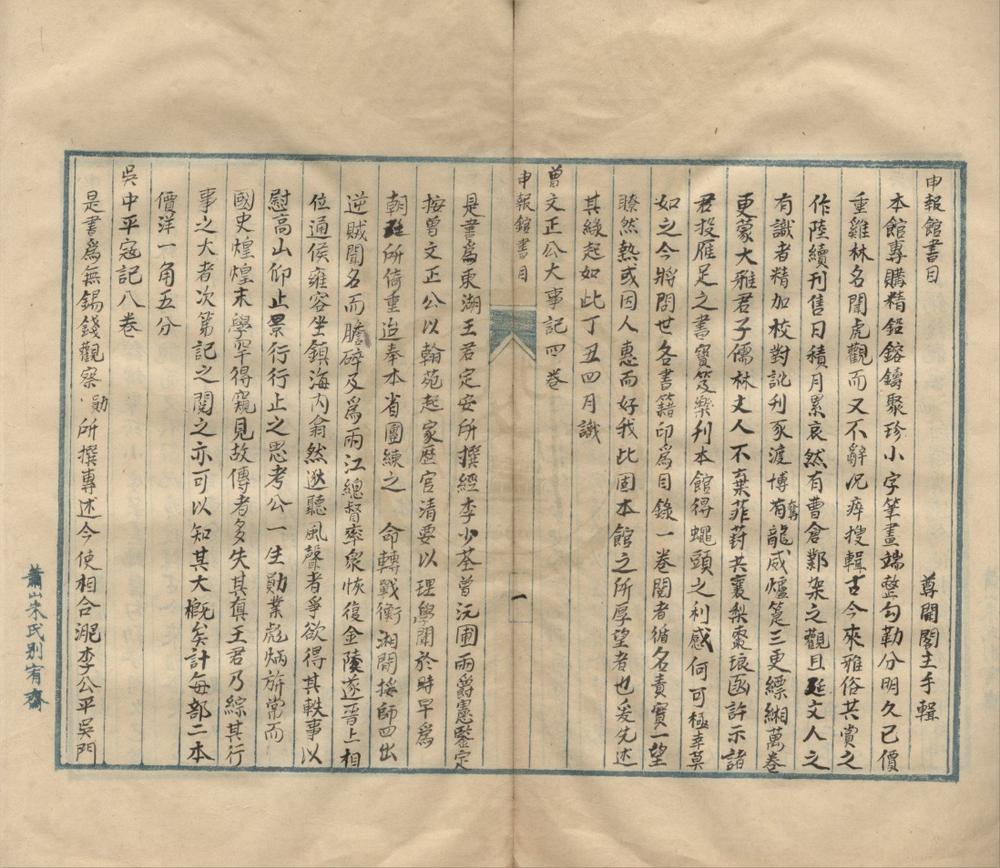 申報館書目　尊聞閣主手輯
本館專購精鉛鎔鑄聚珍小字筆畫端整勾勒分明久已價
重雞林名聞虎觀而又不辭況瘁搜輯古今來雅俗共賞之
作陸續刊售日積月累裒然有曹倉鄴架之觀且延文人之
有識者精加校對訛刊豕渡博奪有龍威爐篝三更縹緗萬卷
更蒙大雅君子儒林丈人不棄菲葑共襄梨棗琅函許示諸
君投雁足之書寶笈樂刊本館得蠅頭之利感何可極幸莫
如之今將問世各書籍印為目錄一卷閱者循名責實一望
瞭然熱或因人惠而好我此固本館之所厚望者也爰先述
其緣起如此丁丑四月識
曾文正公大事記四卷
申報館書目
一
是書為東湖王君定安所撰經李少荃曾沅圃兩爵憲鑒定
按曾文正公以翰苑起家歷官清要以理學聞於時早為
朝廷所倚重迨奉本省團練之　命轉戰衡湘間接師四出
逆賊聞名而膽碎及為兩江總督率眾恢復金陵遂晉上相
位通侯雍容坐鎮海內翕然逖聽風聲者爭欲得其軼事以
慰高山仰止景行行止之思考公一生勛業彪炳旂常而
國史煌煌末學罕得窺見故傳者多失其真王君乃綜其行
事之大者次第記之閱之亦可以知其大概矣計每部二本
價洋一角五分
吳中平寇記八卷
是書為無錫錢觀察勛所撰專述今使相合淝李公平吳門
蕭山朱氏別宥齋